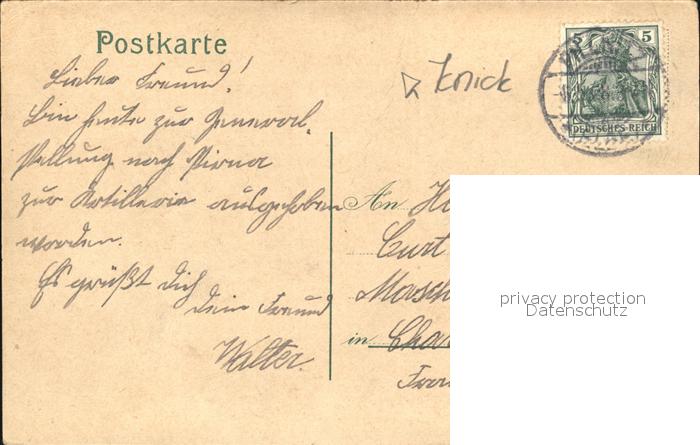 Postkarte
Lieber Freund!
Bin heute zur General-
stellung nach Pirna
zur Artillerie ausgehoben
worden.
Es grüßt Dich
dein Freund
Walter.
knick
5
DEUTSCHES REICH
An
Curt
Masch
in Cha
Fra
privacy protection
Datenschutz